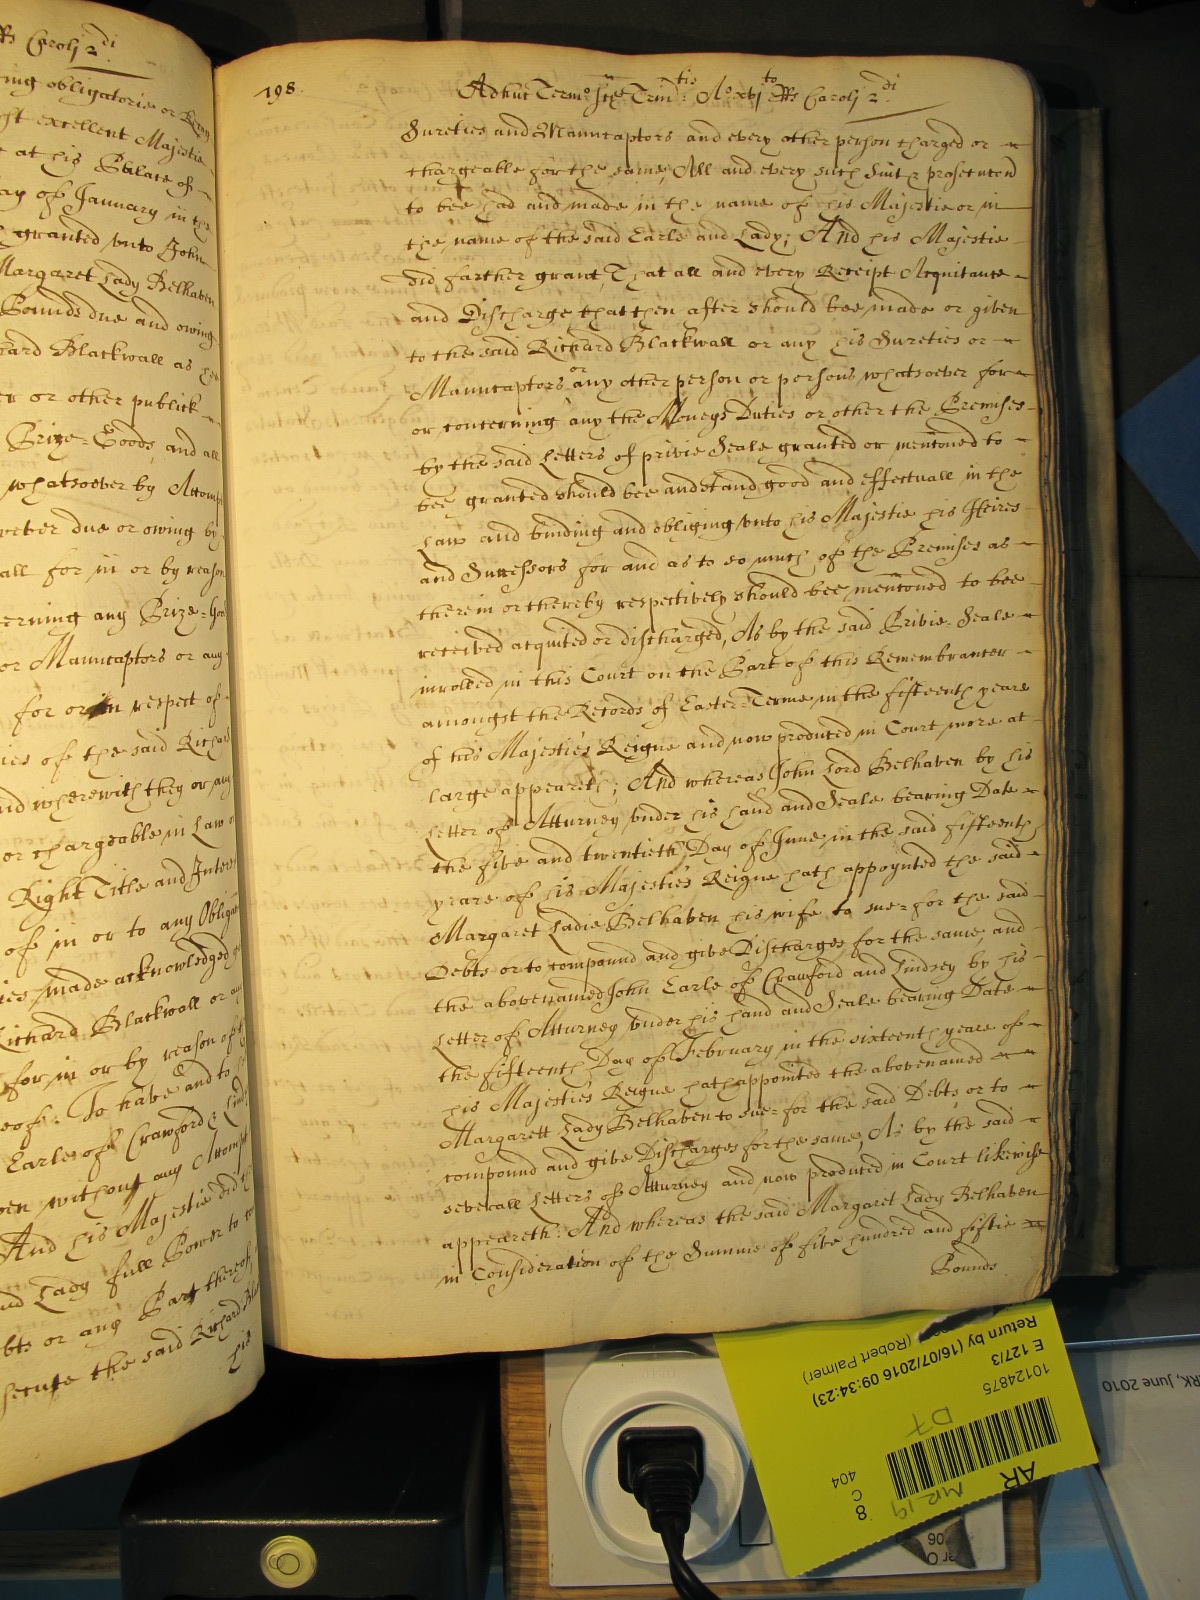 Rs Caroli 2di
ing obligatorie or
st excellent Majestie
at his Pallace of
ay of January in the
granted unto John
Margaret Lady Belhaven
Pounds due and owing
ard Blackwall as
er or other publick
Prize-Goods, and all
whatsoever by
soever due or owing by
all for in or by reason
cerning any Prize-
or Manucaptors or any
for or in respect of
ies of the said Richard
nd wherewith they or any
or chargeable in Law
Right Title and
of in or to any
ies made acknowledged
Richard Blackwall or
for in or by reason of
eof: To have and to
Earle of Crawford &
en without any
And his Majestie did
nd Lady full Power to
bts or any Part thereof
secute the said Richard
his
198
Adhuc Termo Sce Trintis Ao xvjto Rs Caroli 2di
Sureties and Manucaptors and every other person charged or
chargeable for the same, All and every such Suit & prosecucon
to bee had and made in the name of his Majestie or in
the name of the said Earle and Lady; And his Majestie
did farther grant, That all and every Receipt Acquitance
and Discharge that then after should bee made or given
to the said Richard Blackwall or any his Sureties or
Manucaptors or any other person or persons whatsoever for
or concerning any the Moneys Duties or other the Premises
by the said Letters of privie Seale granted or mencioned to
bee granted should bee and stand good and effectuall in the
Law and binding and obliging unto his Majestie his Heires
and Successors for and as to so much of the Premises as
therein or thereby respectively should bee mencioned to bee
received acquited or discharged, As by the said Privie-Seale
inrolled in this Court on the Part of this Remembrancer
amongst the Records of Easter-Terme in the fifteenth yeare
of his Majesties Reigne and now produced in Court more at
large appeareth; And whereas John Lord Belhaven by his
Letter of Atturney under his hand and Seale bearing Date
the five and twentieth Day of June in the said fifteenth
yeare of his Majesties Reigne hath appoynted the said
Margaret Ladie Belhaven his wife to sue for the said
Debts or to compound and give Discharges for the same, and
the abovenamed John Earle of Crawford and Lindsey by his
Letter of Atturney under his hand and Seale bearing Date
the fifteenth Day of February in the sixteenth yeare of
his Majesties Reigne hath appointed the abovenamed
Margarett Lady Belhaven to sue for the said Debts or to
compound and give Discharges for the same, As by the said
severall Letters of Atturney and now produced in Court likewise
appeareth: And whereas the said Margaret Lady Belhaven
in Consideration of the Summe of five hundred and fiftie
Pounds
Return by (16/07/2016 09:34:23)
(Robert Palmer)
E 127/3
10124875
D7
AR
MR 19
8
C
404
RK, June 2010